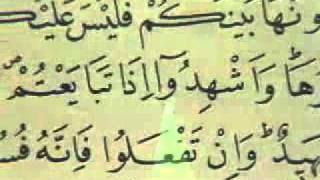 ونَهَا بَيْنَكُمْ فَلَيْسَ عَلَيْكُ
وْهَا ؕ وَاَشْهِدُوْٓا اِذَا تَبَايَعْتُمْ ۪
هِيْدٌ ؕ۬ وَاِنْ تَفْعَلُوْا فَاِنَّهٗ فُسُ